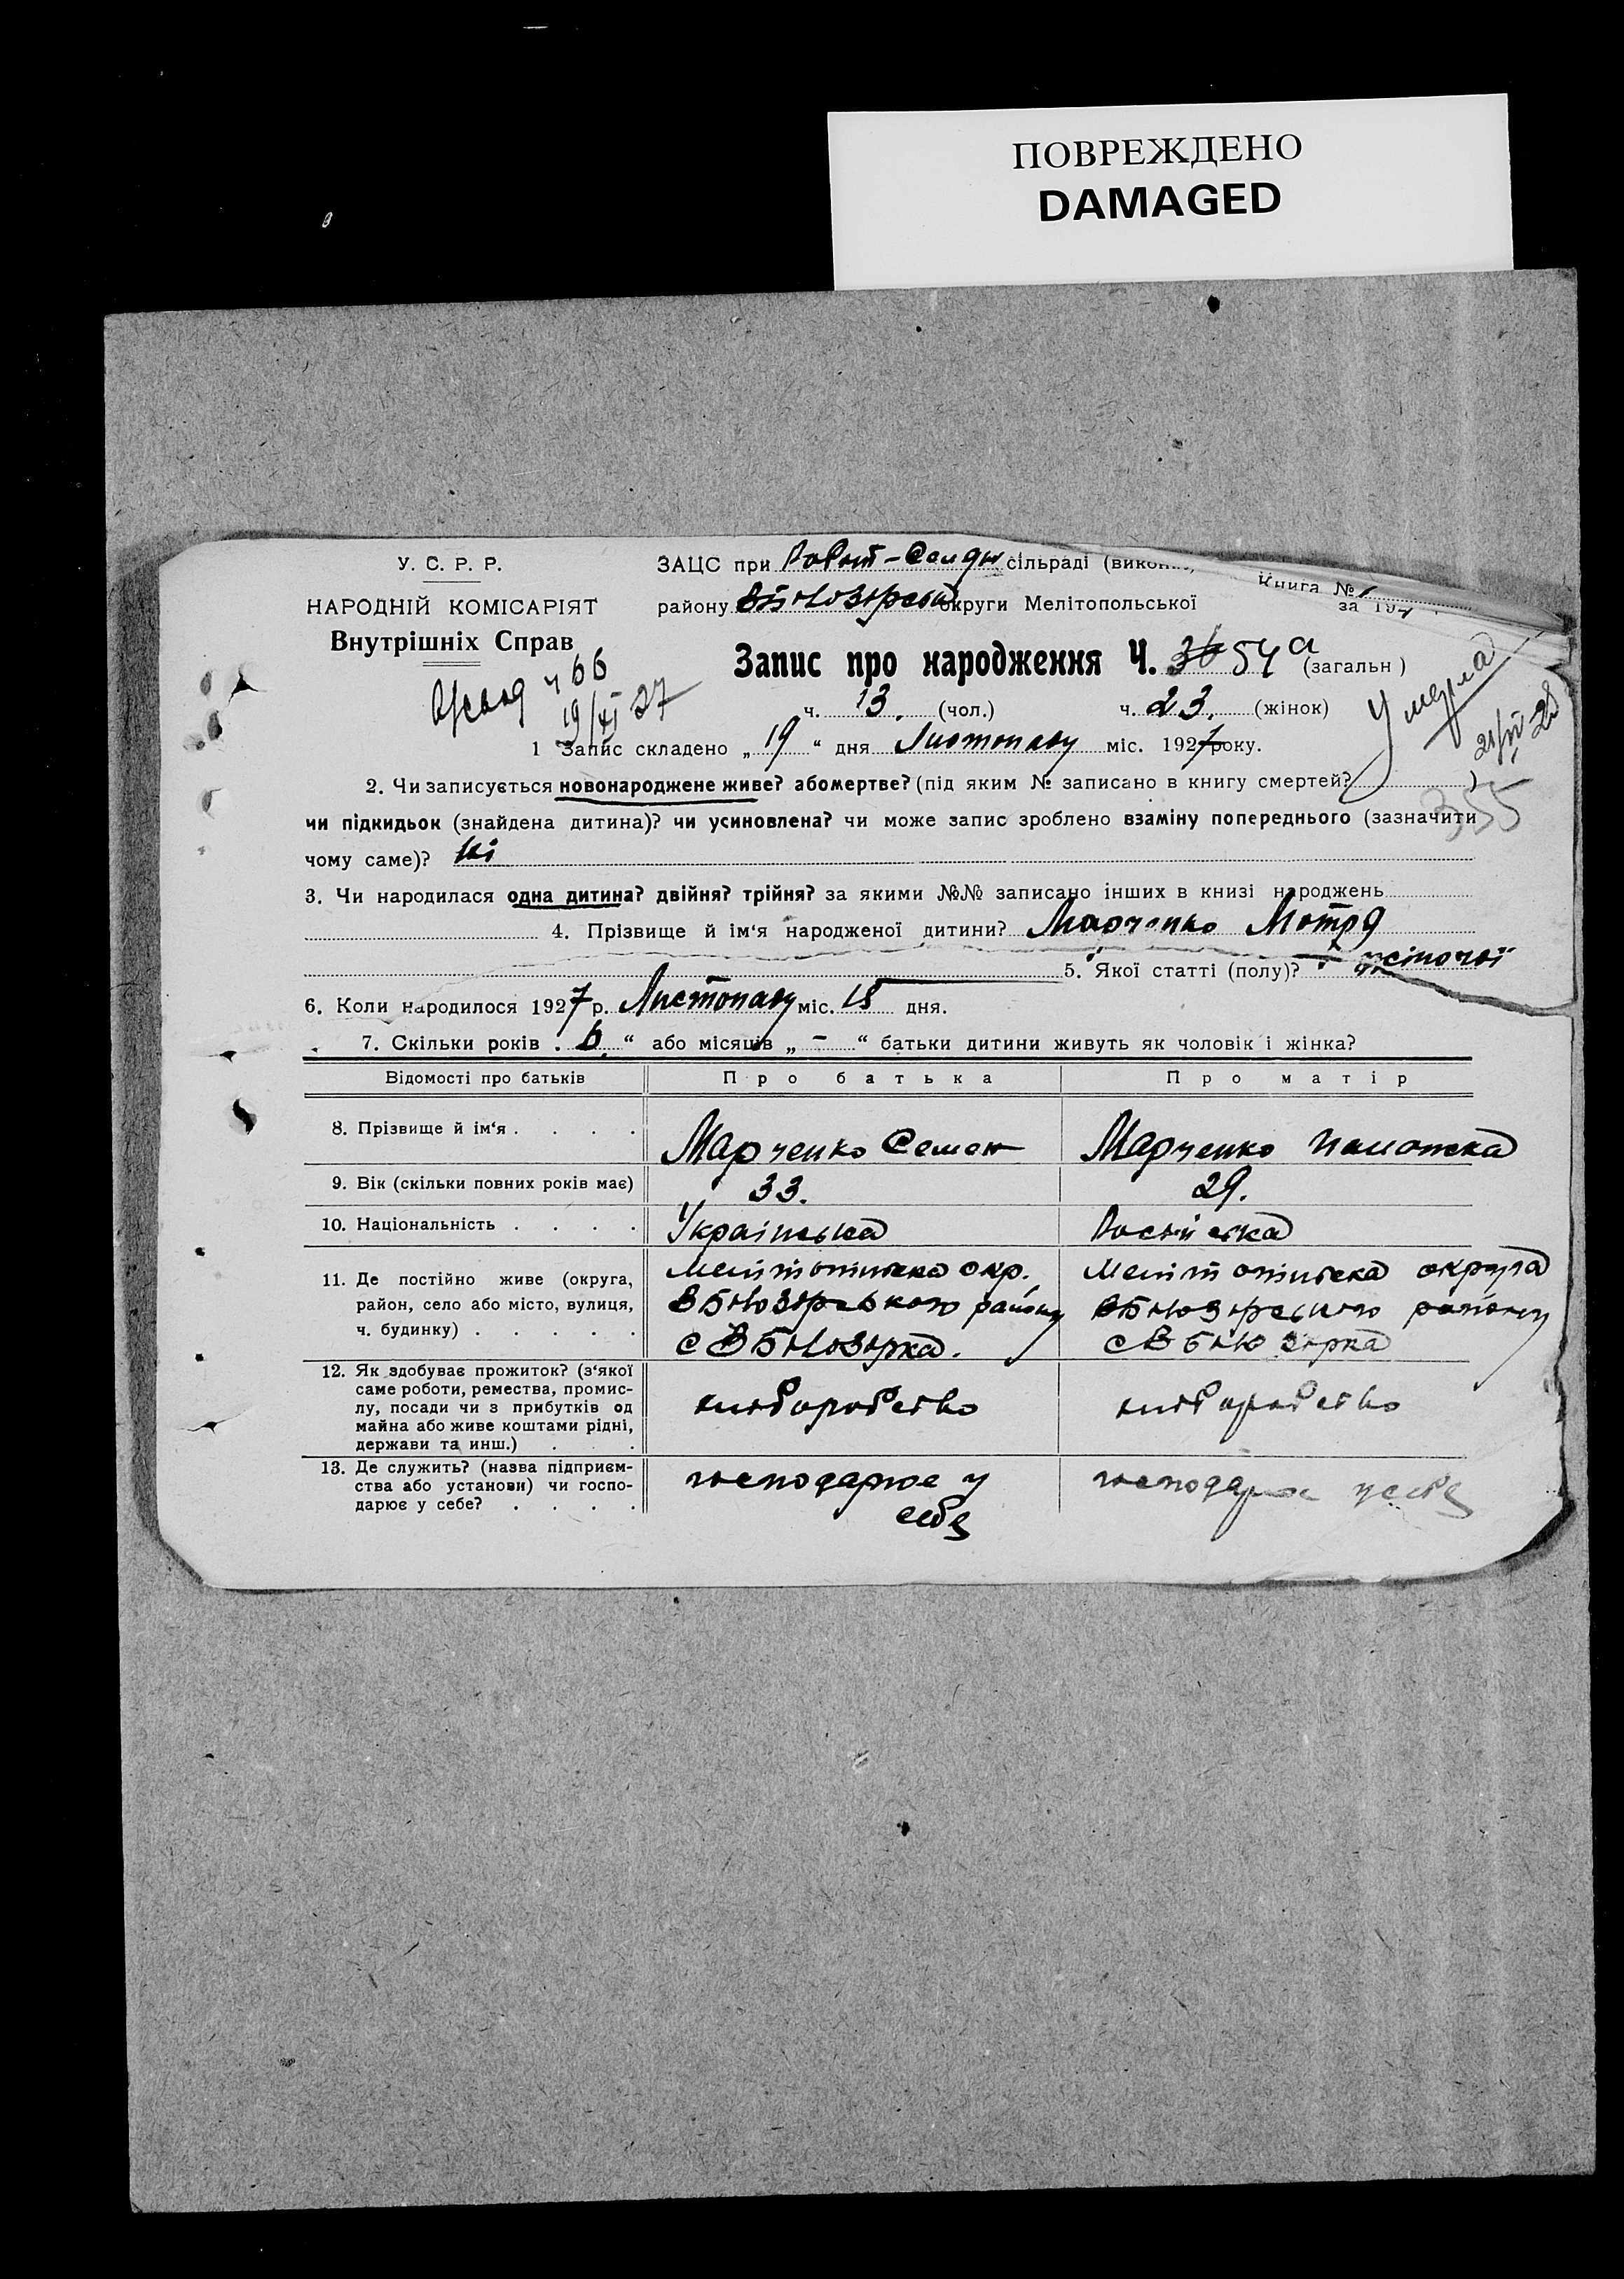 ПОВРЕЖДЕНО
DAMAGED
У. С. Р. Р.
НАРОДНІЙ КОМІСАРІЯТ
Внутрішніх Справ
ЗАЦС при сільраді
району округи Мелітопольської
Книга №
за 192
Запис про народження Ч. 36 54а (загальн)
ч. 13. (чол.) ч. 23. (жінок)
ч 66
19/XI 27
Умерла
28
355
1 Запис складено „ 19 “ дня Листопаду міс. 1927 року.
2. Чи записується новонароджене живе? або мертве? (під яким № записано в книгу смертей? )
чи підкидьок (знайдена дитина)? чи усиновлена? чи може запис зроблено взаміну попереднього (зазначити
чому саме)? Ні
3. Чи народилася одна дитина? двійня? трійня? за якими №№ записано інших в книзі народжень
4. Прізвище й ім‘я народженої дитини? Марченко Мотря
5. Якої статті (полу)? жіночої
6. Коли народилося 1927 р. Листопаду міс. 15 дня.
7. Скільки років „ 6 “ або місяців „ – “ батьки дитини живуть як чоловік і жінка?
Відомості про батьків Про батька Про матір
8. Прізвище й ім‘я . . . . Марченко Семен Марченко
9. Вік (скільки повних років має) 33. 29.
10. Національність . . . . Українська Російська
11. Де постійно живе (округа,
район, село або місто, вулиця,
ч. будинку) . . . . .
Мелітопільска окр.
району
Мелітопільска округа
району
12. Як здобуває прожиток? (з‘якої
саме роботи, ремества, промис-
лу, посади чи з прибутків од
майна або живе коштами рідні,
держави та инш.) . .
хліборобство хліборобство
13. Де служить? (назва підприєм-
ства або установи) чи госпо-
дарює у себе? . . . .
господарює у
себе
господарює у себе